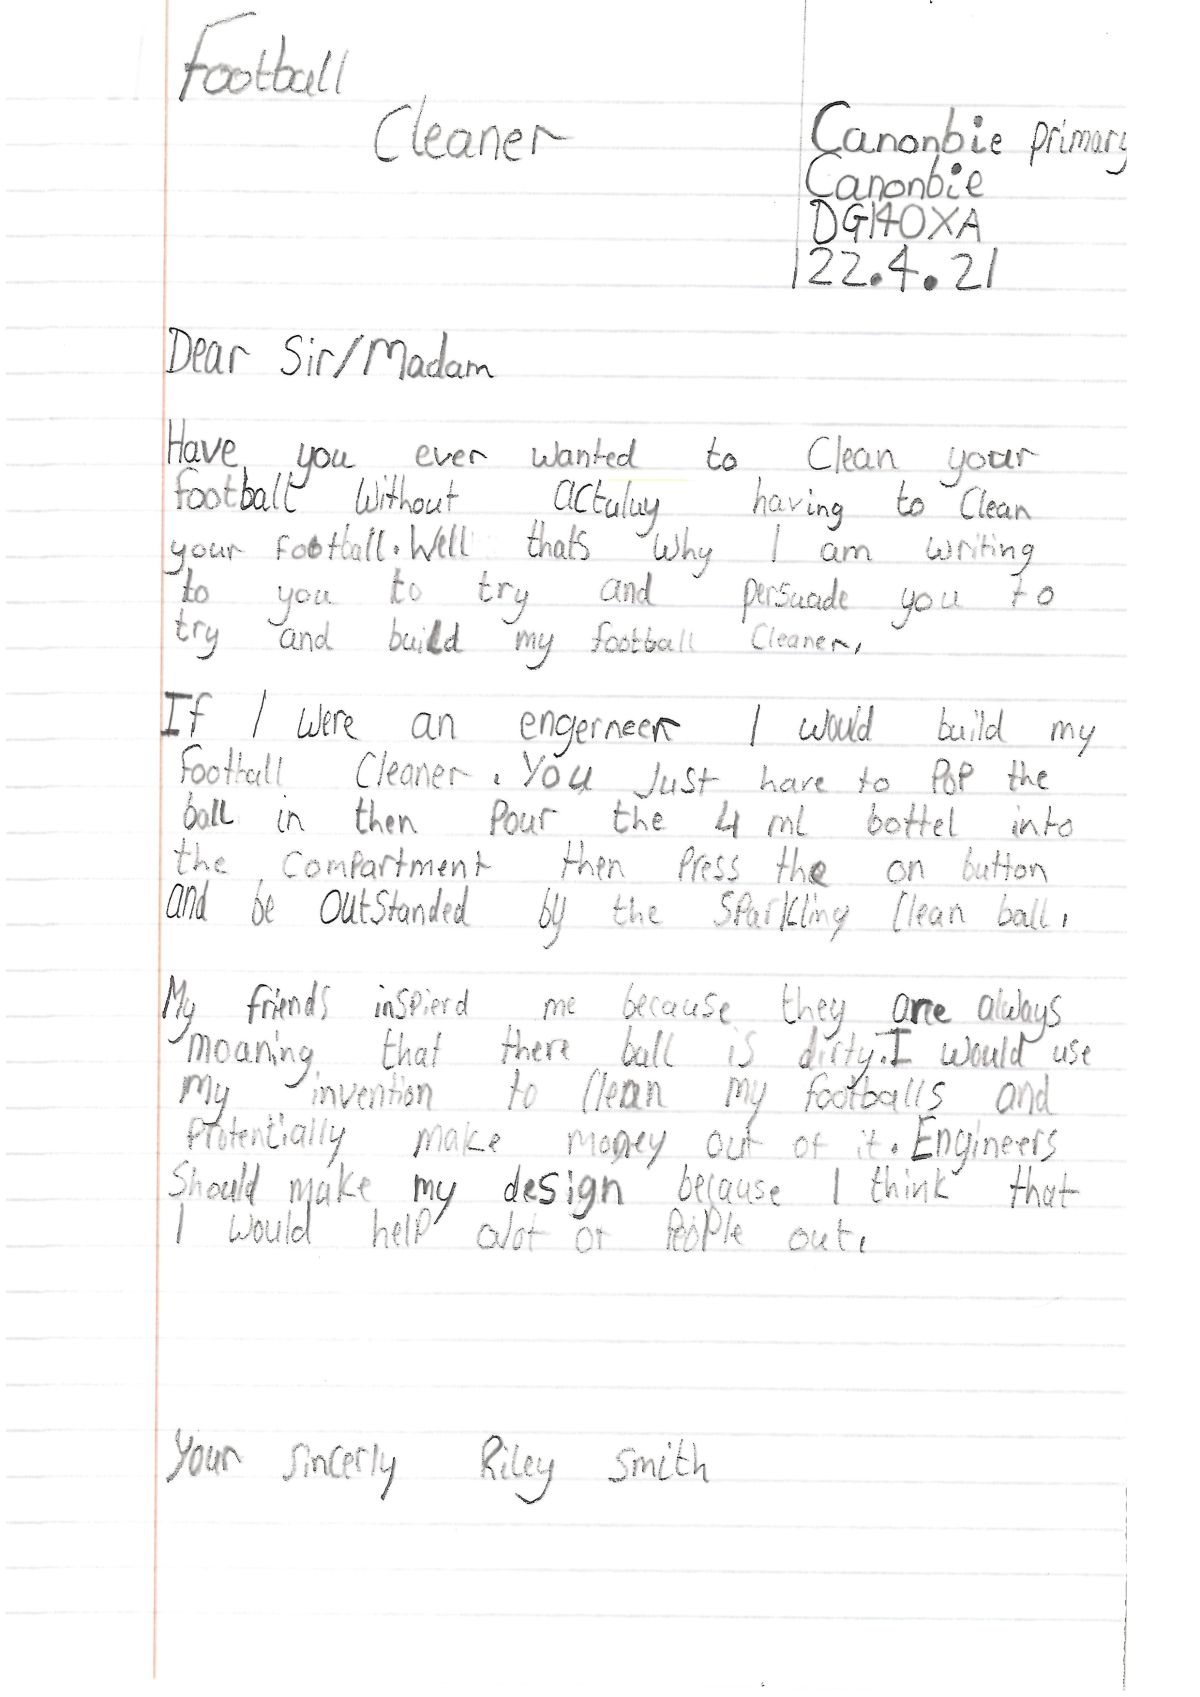 Football
Cleaner
Canonbie primary
Canonbie
DG140XA
22.4.21
Dear Sir/Madam
Have you ever wanted to Clean your
football Without actuluy having to Clean
your football. Well thats Why I am writing
to you to try and persuade you to
try and build my football Cleaner.
If I were an engerneer I would build my
Football Cleaner. You Just have to POP the
ball in then Pour the 4 ml bottel into
the Compartment then Press the on button
and be OutStanded by the SParkling Clean ball.
My friends inspierd me because they are always
moaning that there ball is dirty. I would use
my invention to Clean my footballs and
Protentially make money out of it. Engineers
Should make my design because I think that
I would help alot of PeoPle out.
Your sincerly Riley Smith